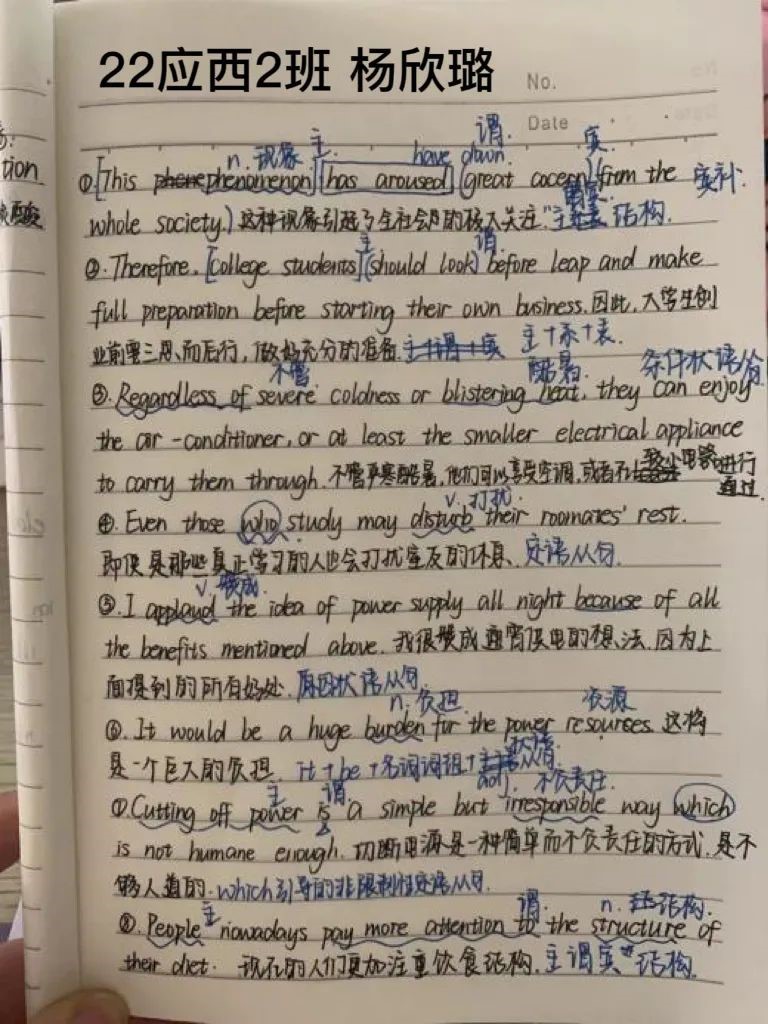 22应西2班 杨欣璐
No.
Date
tion
n. 现象 主. have drawn. 谓. 宾.
①. [This phenomenon] [has aroused] (great cocern) (from the 宾补.
whole society.) 这种现象引起了全社会的极大关注. 结构.
主 谓.
②. Therefore. [College students] (should look) before leap and make
full preparation before starting their own business. 因此, 大学生创
业前要三思而后行, 做好充分的准备. 主+谓+宾 主+系+表.
不管 酷暑. 条件状语从句
③. Regardless of severe coldness or blistering heat, they can enjoy
the air-conditioner, or at least the smaller electrical appliance
to carry them through. 不管严寒酷暑, 他们可以享受空调, 或者 较小电器 进行
通过.
v. 打扰
④. Even those who study may disturb their roomates' rest.
即使是那些真正学习的人也会打扰室友的休息. 定语从句.
v. 赞成.
⑤. I applaud the idea of power supply all night because of all
the benefits mentioned above. 我很赞成通宵供电的想法. 因为上
面提到的所有好处. 原因状语从句.
n. 负担 资源
⑥. It would be a huge burden for the power resources. 这将
是一个巨大的负担. it + be + 名词词组 + 从句.
主 谓. adj. 不负责任.
⑦. Cutting off power is a simple but irresponsible way which
is not humane enough. 切断电源是一种简单而不负责任的方式. 是不
够人道的. which引导的非限制性定语从句.
主 谓. n. 结构.
⑧. People nowadays pay more attention to the structure of
their diet. 现在的人们更加注重饮食结构. 主谓宾 结构.